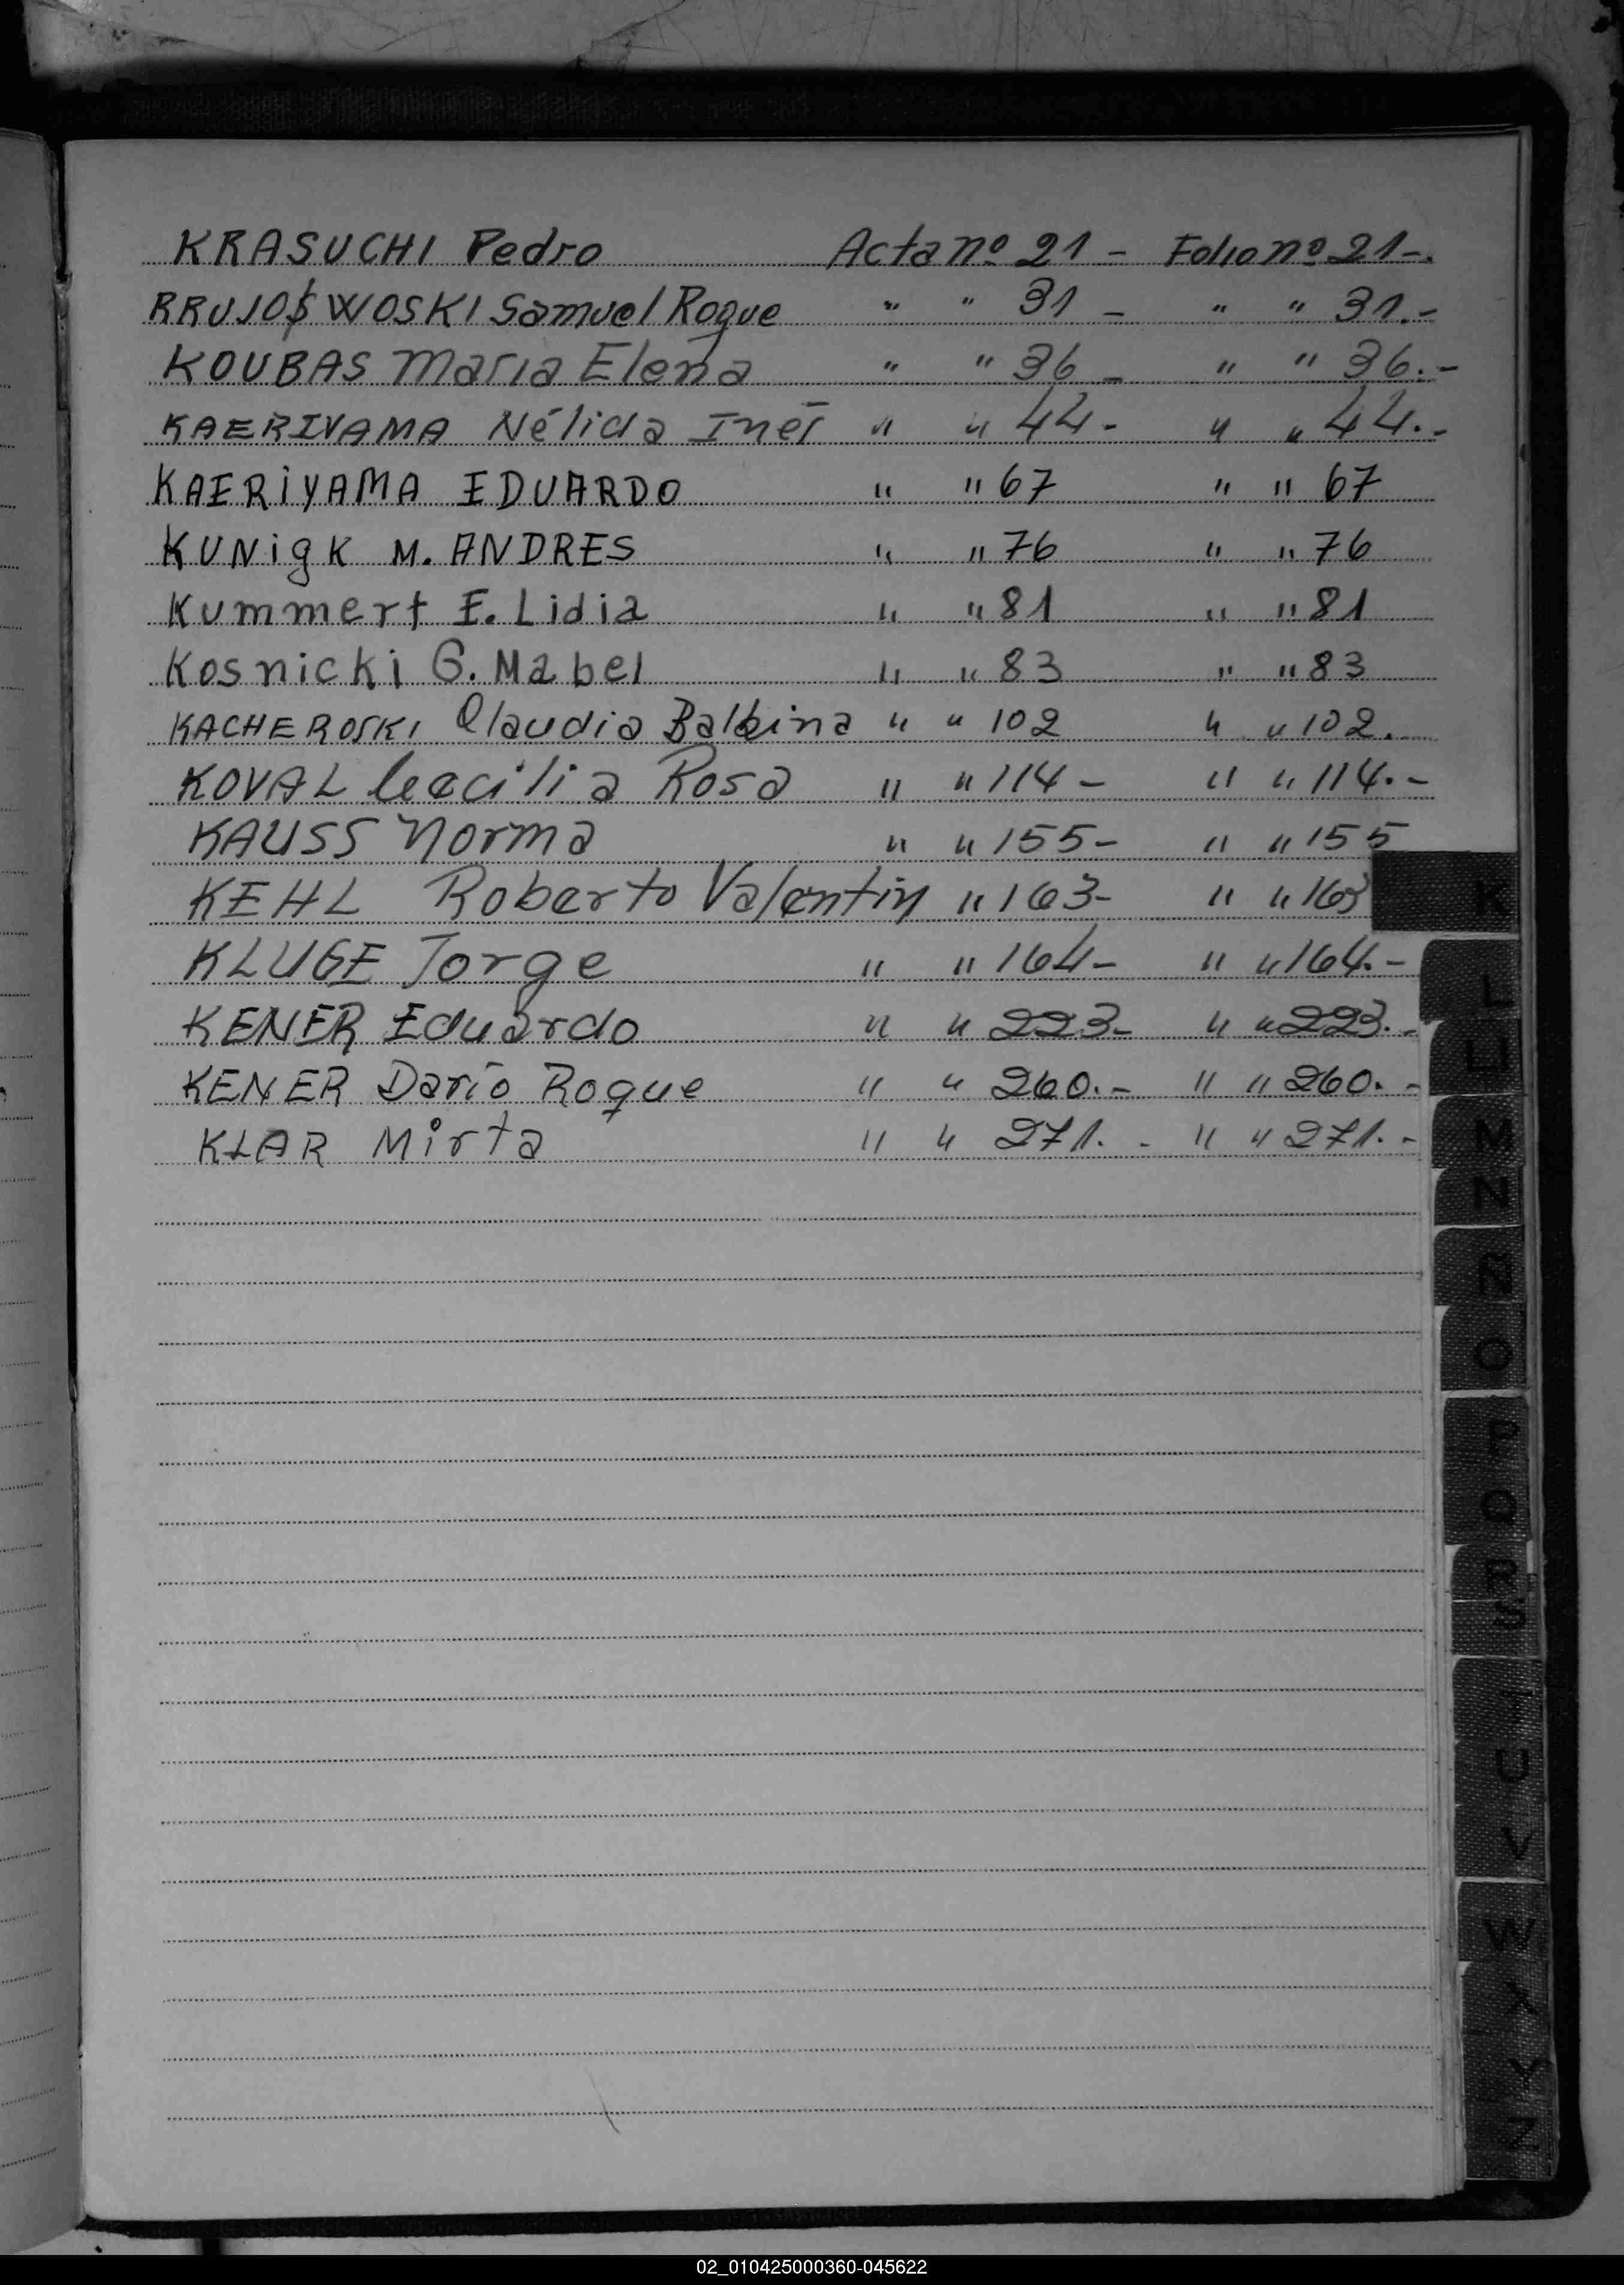 KRASUCHI Pedro Acta nº 21 - Folio nº 21-.
RRUJOSWOSKI Samuel Roque " " 31 - " " 31.-
KOUBAS Maria Elena " " 36 - " " 36.-
KAERIYAMA Nélida Inés " " 44- " " 44.-
KAERiYAMA EDUARDO " " 67 " " 67
KUNigK M. ANDRES " " 76 " " 76
Kummert E. Lidia " " 81 " " 81
Kosnicki G. Mabel " " 83 " " 83
KACHEROSKI Claudia Balbina " " 102 " " 102.
KOVAL Cecilia Rosa " " 114- " " 114.-
KAUSS Norma " " 155- " " 155
KEHL Roberto Valentin " 163- " " 163
KLUGE Jorge " " 164- " " 164.-
KENER Eduardo " " 223- " " 223.-
KENER Darío Roque " " 260.- " " 260.-
KLAR Mirta " " 271.- " " 271.-
K
L
LL
M
N
Ñ
O
P
Q
R
S
T
U
V
W
X
Y
Z
02_010425000360-045622